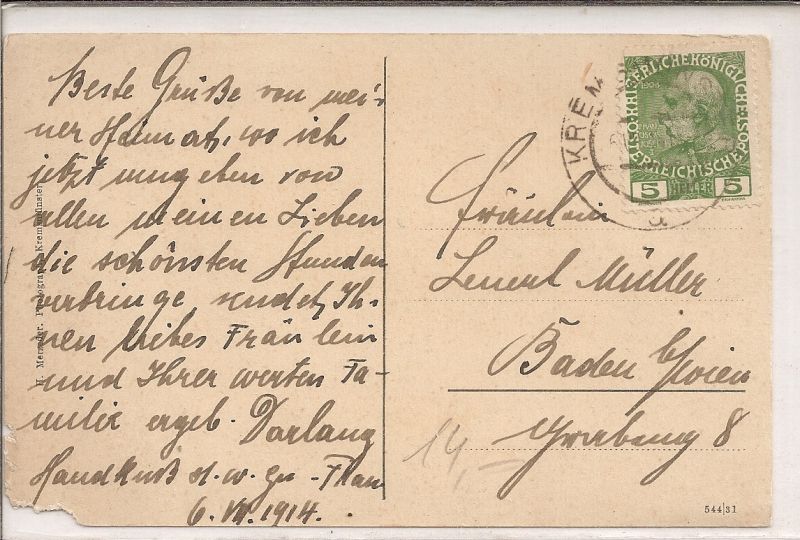 Beste Grüße von mei-
ner Heimat, wo ich
jetzt umgeben von
allen meinen Lieben
die schönsten Stunden
verbringe sendet Ih-
nen liebes Fräulein
und Ihrer werten Fa-
milie ergeb. Darlang
Handkuß
6. VII. 1914.
H. Photograph, Kremsmünster
KREM
KAISERLICHE KÖNIGLICHE
ÖSTERREICHISCHE POST
1908
5 HELLER 5
Fräulein
Müller
Baden b/Wien
8
14,–
544|31